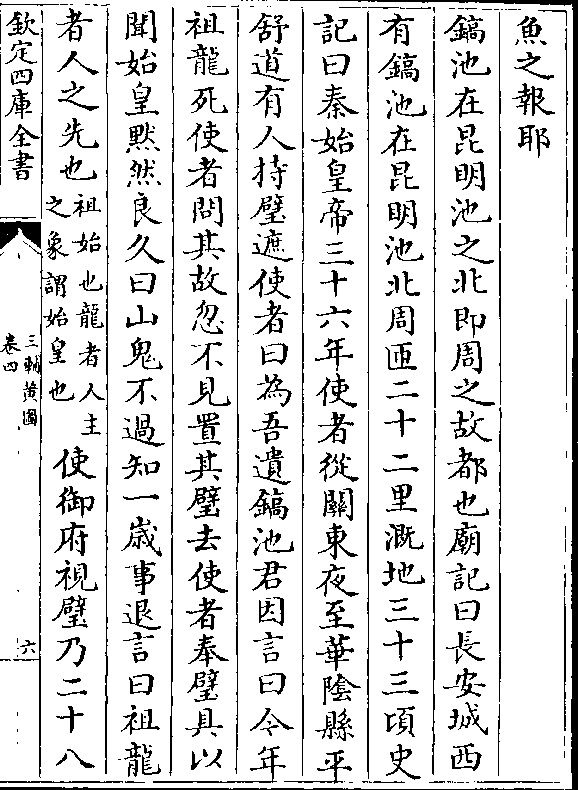 魚之報耶
鎬池在昆明池之北即周之故都也廟記曰長安城西
有鎬池在昆明池北周匝二十二里溉地三十三頃史
記曰秦始皇帝三十六年使者從關東夜至華陰縣平
舒道有人持璧遮使者曰為吾遺鎬池君因言曰今年
祖龍死使者問其故忽不見置其璧去使者奉璧具以
聞始皇黙然良久曰山鬼不過知一歳事退言曰祖龍
者人之先也祖始也龍者人主之象謂始皇也使御府視璧乃二十八
欽定四庫全書
三輔黄圖
卷四
六